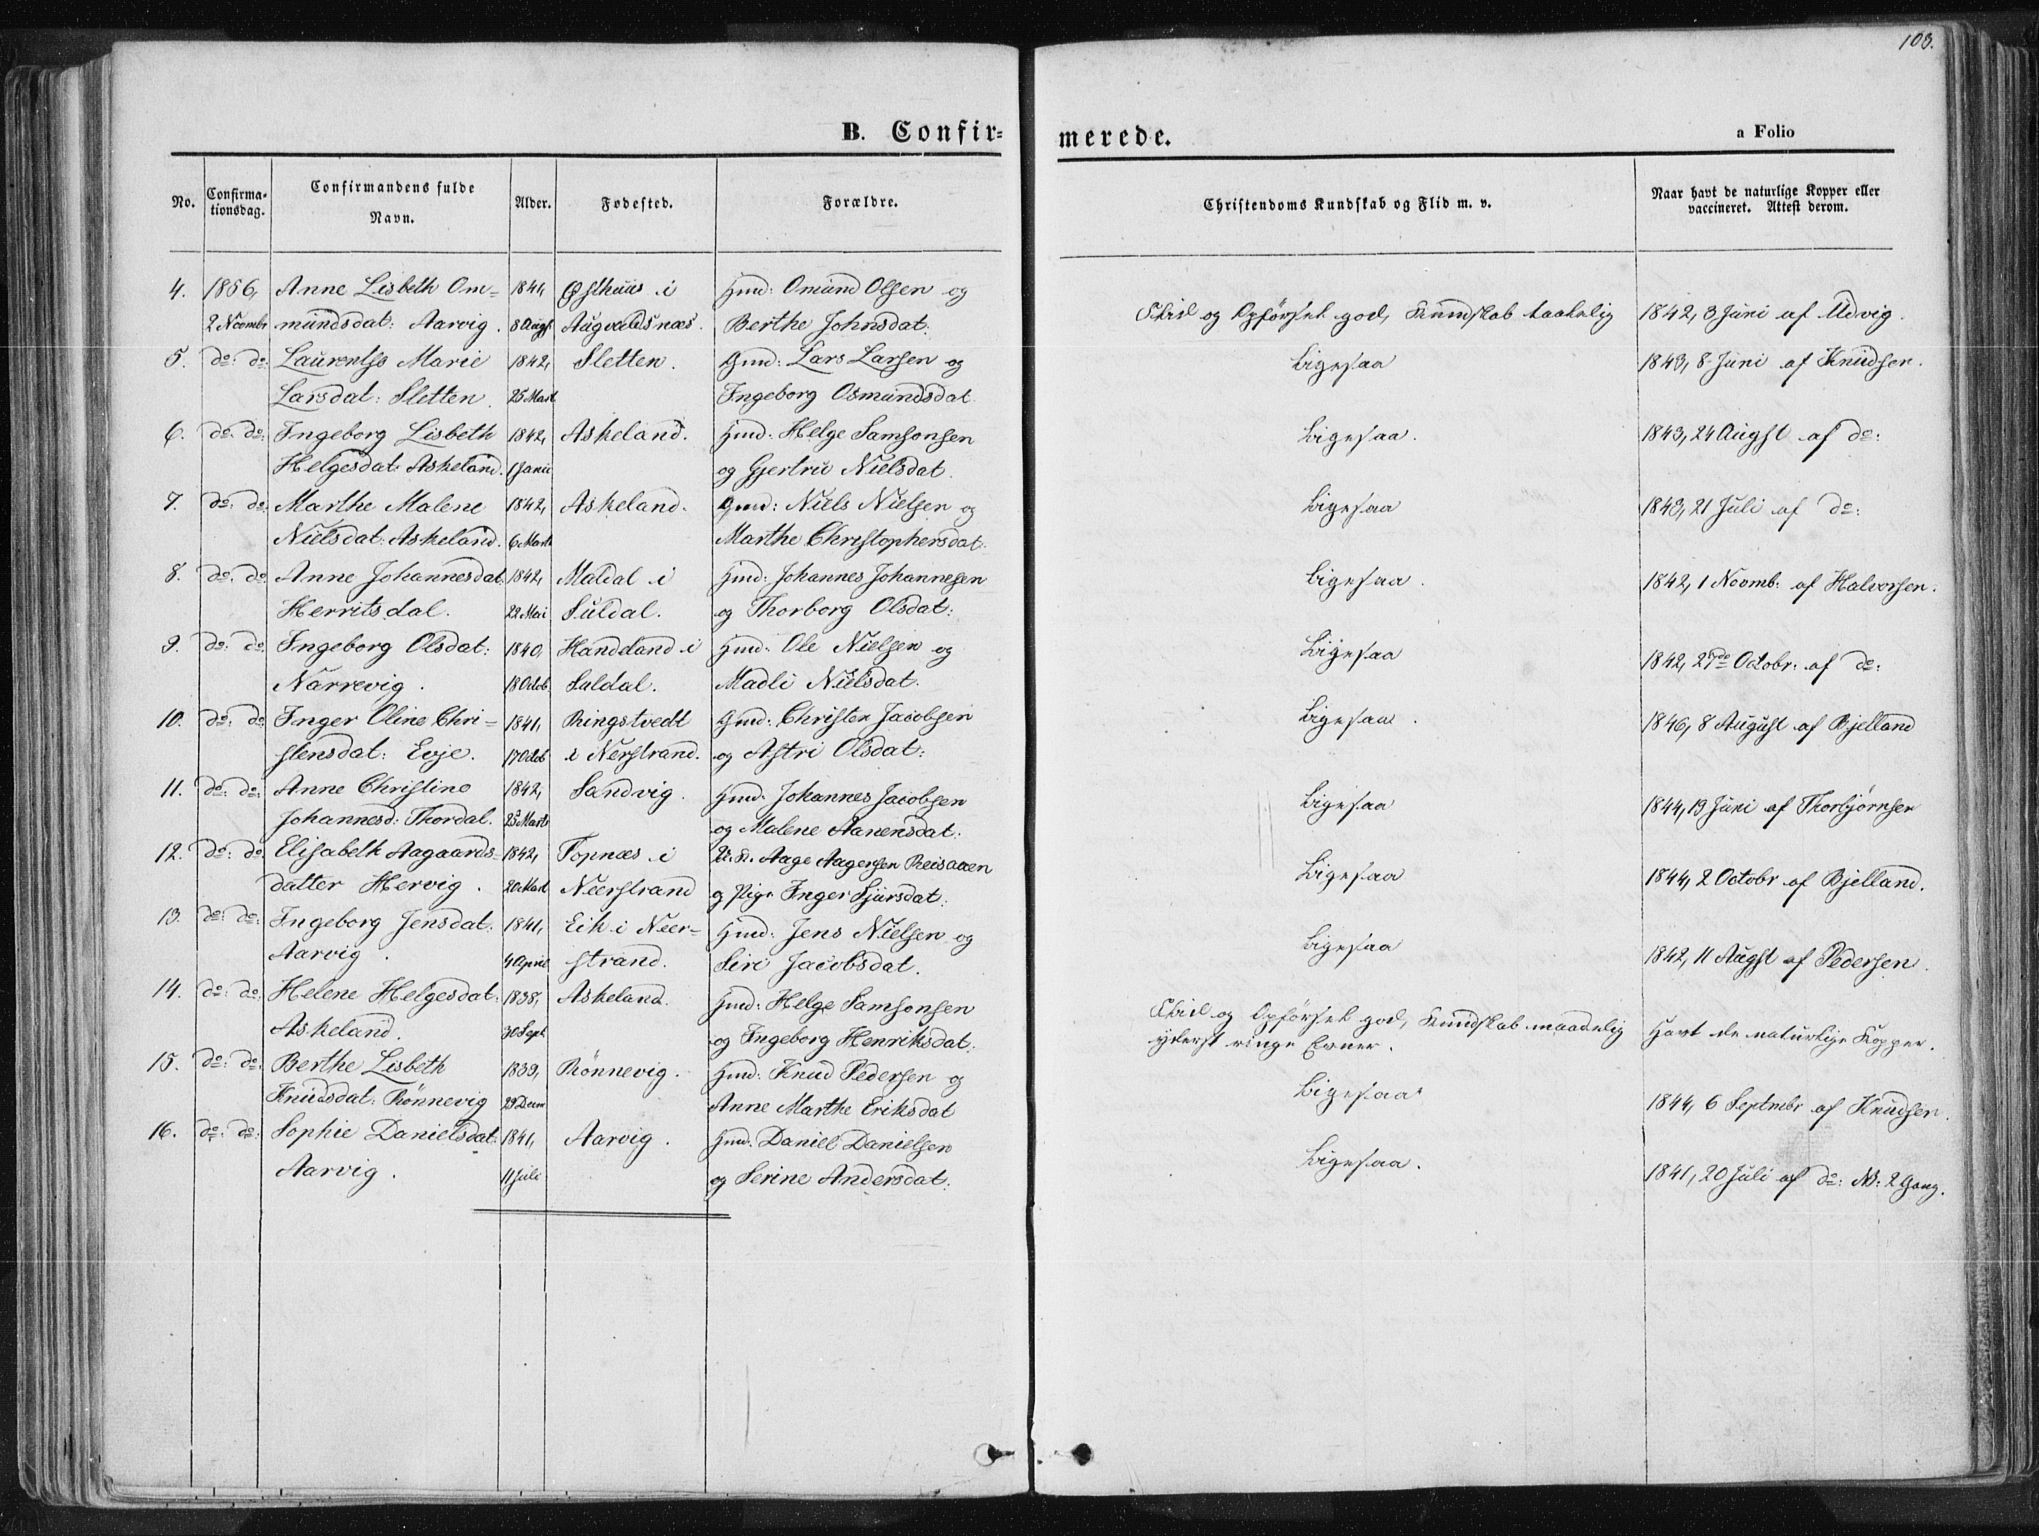 103.
B. Confir=
merede.
a Folio
No.
Confirma-
tionsdag.
Confirmandens fulde
Navn.
Alder.
Fødested.
Forældre.
Christendoms Kundskab og Flid m. v.
Naar havt de naturlige Kopper eller
vaccineret. Attest derom.
4. 1856, Anne Lisbeth Om= 1841, Østhuus i Gmd: Omund Olsen og
2 Novmbr mundsdat: Aarvig. 8 Augst Augvaldsnæs. Berthe Johnsdat:
Flid og Opførsel god, Kundskab taalelig 1842, 3 Juni af Udvig.
5. do: do: Laurentse Marie 1842, Sletten. Gmd: Lars Larsen og
Larsdat: Sletten. 25 Mart Ingeborg Osmundsdat
Ligesaa 1843, 8 Juni af Knudsen.
6. do: do: Ingeborg Lisbeth 1842, Askeland. Gmd: Helge Samsonsen
Helgesdat: Askeland. 1 Janu og Gjertru Nielsdat.
Ligesaa. 1843, 24 Augst af do:
7. do: do: Marthe Malene 1842, Askeland. Gmd: Niels Nielsen og
Nielsdat: Askeland. 6 Marts Marthe Christophersdat.
Ligesaa 1843, 21 Juli af do:
8. do: do: Anne Johannesdat: 1842, Maldal i Gmd: Johannes Johannesen
Herritsdal. 22 Mai Suldal. og Thorborg Olsdat:
Ligesaa. 1842, 1 Novmb: af Halvorsen.
9. do: do: Ingeborg Olsdat: 1840, Handeland i Gmd: Ole Nielsen og
Narrevig. 18 Octob. Suldal. Madli Nielsdat.
Ligesaa 1842, 27de Octobr: af do:
10. do: do: Inger Oline Chri= 1841, Ringstvedt Gmd: Christen Jacobsen
stensdat: Evje. 17 Octob i Nerstrand. og Astri Olsdat:
Ligesaa. 1846, 8 August af Bjelland
11. do: do: Anne Christine 1842, Sandvig. Gmd: Johannes Jacobsen
Johannesd: Thordal. 25 Marts og Malene Aanensdat:
Ligesaa 1844, 19 Juni af Thorbjørnsen
12. do: do: Elisabeth Aagaards= 1842, Topnæs i U. K. Aage Aagesen Reisaaen
datter Hervig. 20 Mart Neerstrand og Pige Inger Sjursdat:
Ligesaa 1844, 2 Octobr af Bjelland.
13. do: do: Ingeborg Jensdat. 1841, Eik i Neer= Gmd: Jens Nielsen og
Aarvig. 4 April strand. Siri Jacobsdat.
Ligesaa 1842, 11 Augst af Pedersen.
14. do: do: Helene Helgesdat: 1838, Askeland. Gmd: Helge Samsonsen
Askeland. 30 Sept og Ingeborg Henriksdat:
Flid og Opførsel god, Kundskab maadelig Havt de naturlige Kopper.
yderst ringe Evner.
15. do: do: Berthe Lisbeth 1839, Rönnevig. Gmd: Knud Pedersen og
Knudsdat: Rönnevig 29 Decm Anne Marthe Eriksdat
Ligesaa 1844, 6 Septmbr af Knudsen.
16. do: do: Sophie Danielsdat: 1841, Aarvig. Gmd: Daniel Danielsen
Aarvig. 11 Juli og Serine Andersdat:
Ligesaa. 1841, 20 Juli af do: No: 2 Gang.